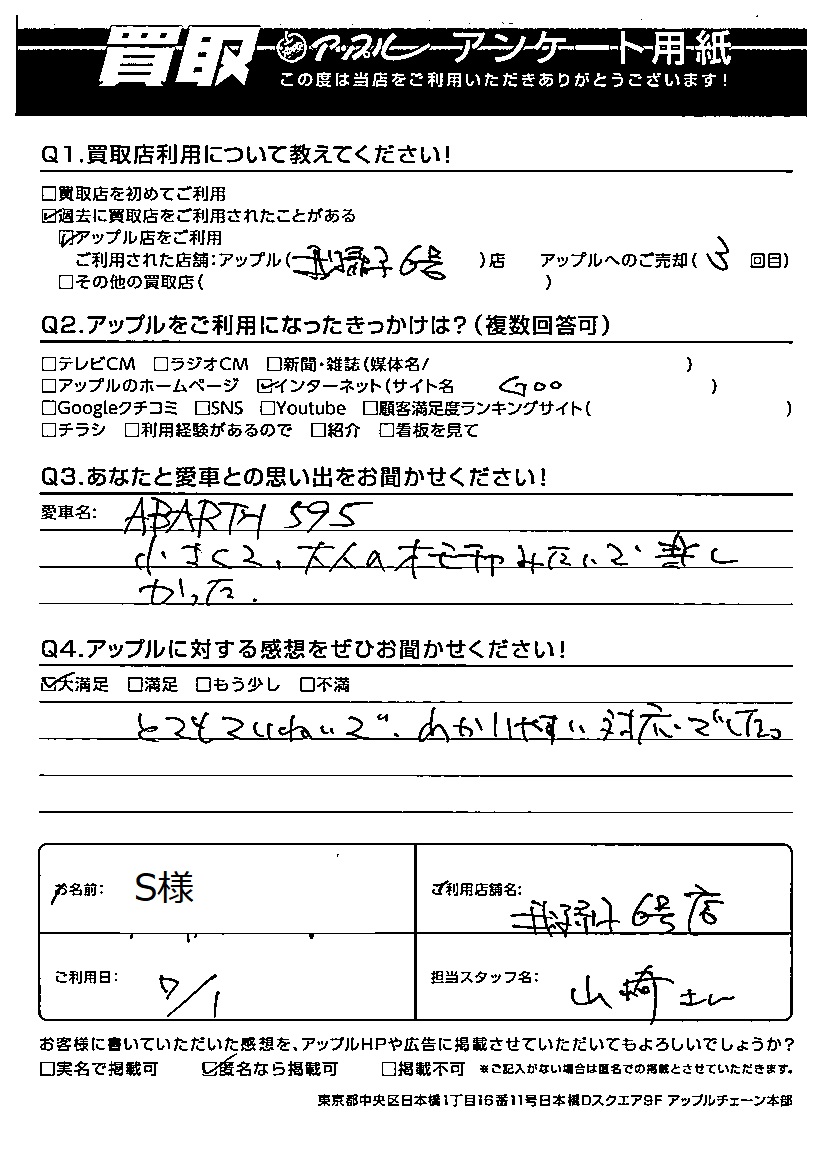 買取 アップル アンケート用紙
この度は当店をご利用いただきありがとうございます!
Q1.買取店利用について教えてください!
□買取店を初めてご利用
☑過去に買取店をご利用されたことがある
☑アップル店をご利用
ご利用された店舗:アップル(我孫子6号)店 アップルへのご売却(3回目)
□その他の買取店( )
Q2.アップルをご利用になったきっかけは?(複数回答可)
□テレビCM □ラジオCM □新聞・雑誌(媒体名/ )
□アップルのホームページ ☑インターネット(サイト名 Goo )
□Googleクチコミ □SNS □Youtube □顧客満足度ランキングサイト( )
□チラシ □利用経験があるので □紹介 □看板を見て
Q3.あなたと愛車との思い出をお聞かせください!
愛車名: ABARTH 595
小さくて、大人のオモチャみたいで楽し
かった.
Q4.アップルに対する感想をぜひお聞かせください!
☑大満足 □満足 □もう少し □不満
とてもていねいで、わかりやすい対応でした。
お名前: S様
ご利用店舗名: 我孫子6号店
ご利用日: 7/1
担当スタッフ名: 山崎さん
お客様に書いていただいた感想を、アップルHPや広告に掲載させていただいてもよろしいでしょうか?
□実名で掲載可 ☑匿名なら掲載可 □掲載不可 ※ご記入がない場合は匿名での掲載とさせていただきます。
東京都中央区日本橋1丁目16番11号日本橋Dスクエア9F アップルチェーン本部